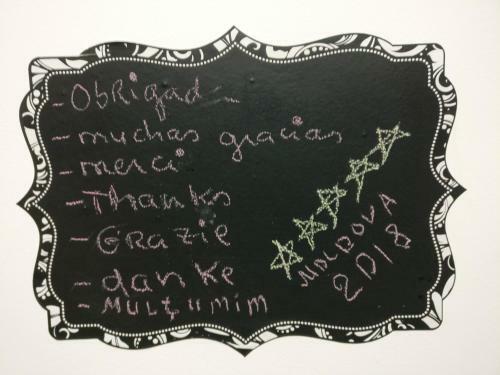 - Obrigad
- muchas gracias
- merci
- Thanks
- Grazie
- danke
- MULȚUMIM
MOLDOVA
2018